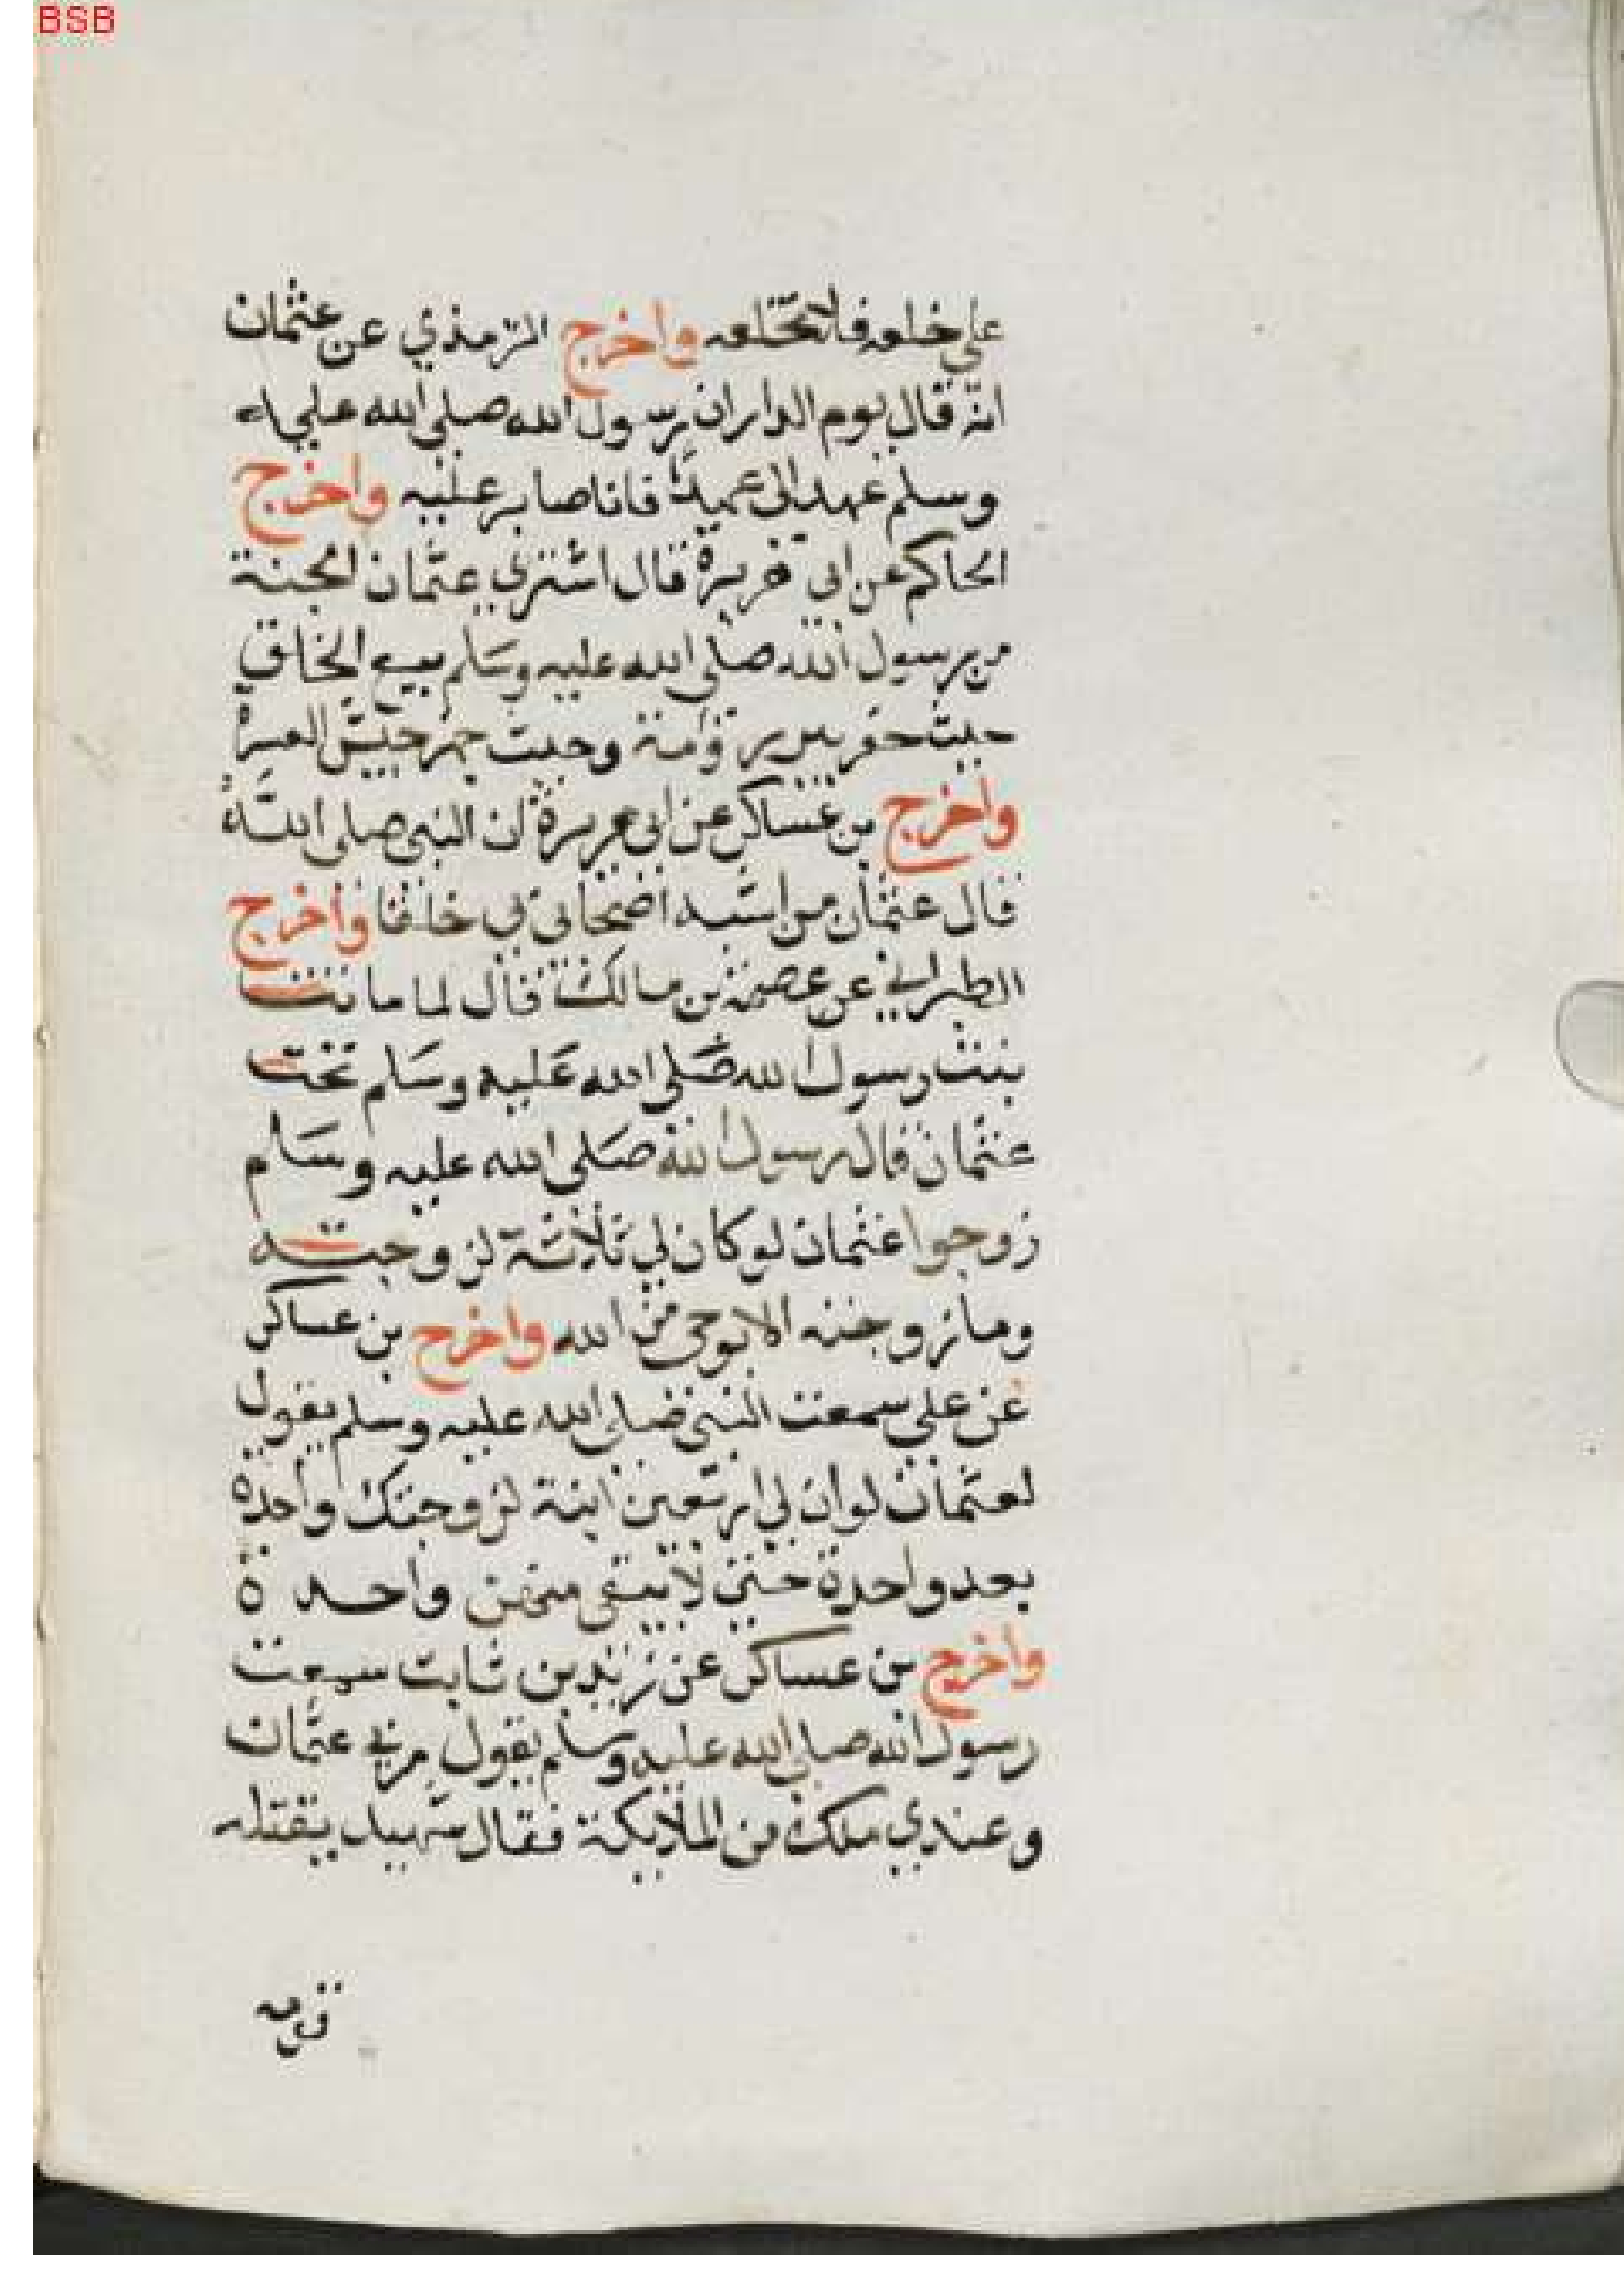 BSB
على خلعه فلا تخلعه واخرج الترمذي عن عثمان
انه قال يوم الدار ان رسول الله صلى الله عليه
وسلم عهد الي عهدا فانا صابر عليه واخرج
الحاكم عن ابي هريرة قال اشتري عثمان الجنة
من رسول الله صلى الله عليه وسلم بيع الخلق
حيث حفر بير رومة وحيث جهز جيش العسرة
واخرج بن عساكر عن ابي هريرة ان النبي صلى الله
قال عثمان من اشبه اصحابي بي خلقا واخرج
الطبراني عن عصمة بن مالك قال لما ماتت
بنت رسول الله صلى الله عليه وسلم تحت
عثمان قال رسول الله صلى الله عليه وسلم
زوجوا عثمان لو كان لي ثلاثة لزوجته
وما زوجته الا بوحي من الله واخرج بن عساكر
عن علي سمعت النبي صلى الله عليه وسلم يقول
لعثمان لو ان لي اربعين ابنة لزوجتك واحدة
بعد واحدة حتي لا يبقى منهن واحدة
واخرج بن عساكر عن زيد بن ثابت سمعت
رسول الله صلى الله عليه وسلم يقول مر بي عثمان
وعندي ملك من الملايكة فقال شهيد يقتله
قومه